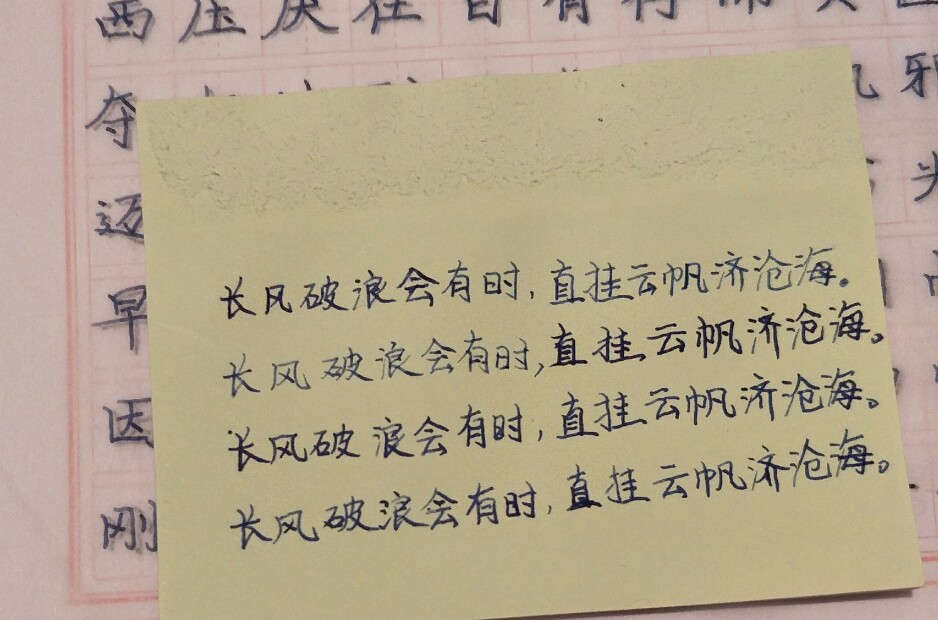 西压厌在百有
夺
迈
早
因
刚
邪
长风破浪会有时,直挂云帆济沧海。
长风破浪会有时,直挂云帆济沧海。
长风破浪会有时,直挂云帆济沧海。
长风破浪会有时,直挂云帆济沧海。